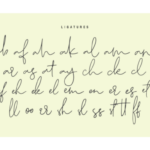 LIGATURES
b af ah ak al am an
ar as at ay ch ck cl
f eh ek el em on er es et
ll oo er sh sl ss tt tt ff